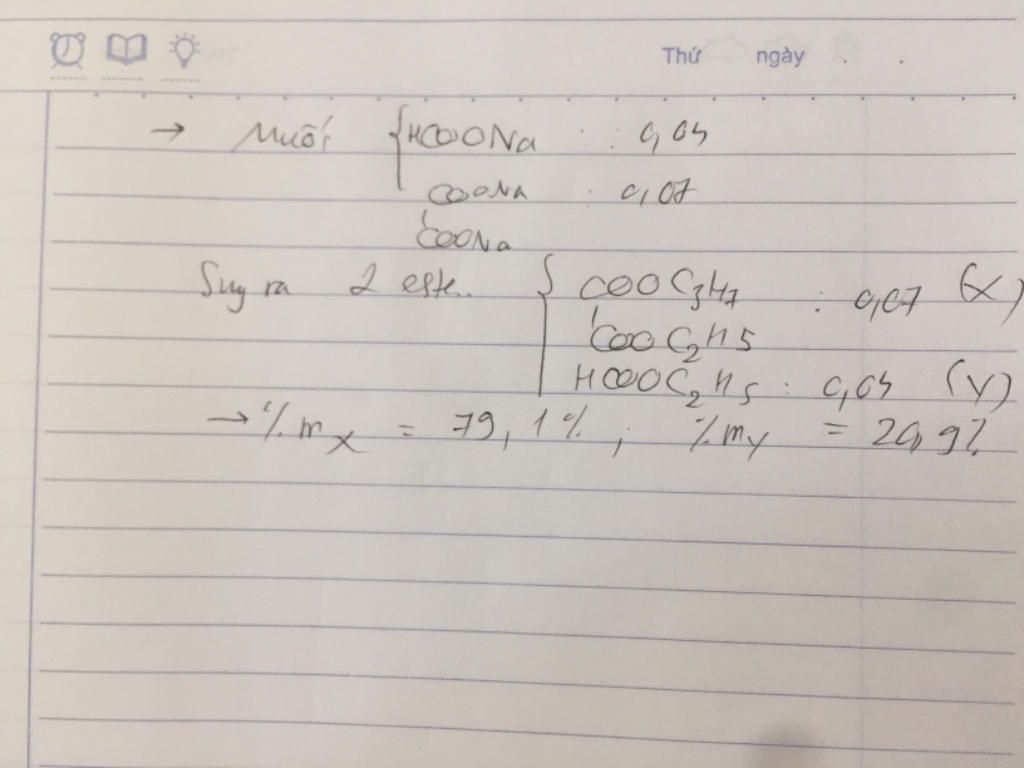 Thứ ngày
→ Muối { HCOONa : 0,04
COONa : 0,07
COONa
Suy ra 2 este. { COOC3H7 : 0,07 (X)
COOC2H5
HCOOC2H5 : 0,04 (Y)
→ %mX = 79,1% ; %mY = 20,9%